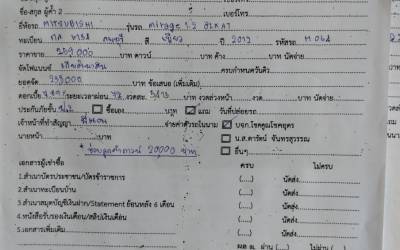 ชื่อ-สกุล ผู้ค้ำ 2 เบอร์โทร
ยี่ห้อรถ MITSUBISHI รุ่นรถ mirage 1.2
ทะเบียน สี ปี 2013 รหัสรถ
ราคาขาย 259,000 บาท ดาวน์ บาท ค้าง บาท นัดจ่าย
จัดไฟแนนซ์ ครบกำหนดวันคิว
ยอดจัด ข้อเสนอ (เพิ่มเติม)
ดอกเบี้ย ระยะเวลาผ่อน 72 งวดละ บาท งวดล่วงหน้า งวด บาท นัดจ่าย
ประกันภัยชั้น ซื้อเอง บาท แถม วันที่ปล่อยรถ
เจ้าหน้าที่ทำสัญญา จ่ายค่าตัวรถในนาม บจก.โชคคูณโชคยูคาร
นายหน้า บาท น.ส.ดารัตน์ จันทรสุวรรณ
20,000 บาท อื่นๆ
เอกสารผู้เช่าซื้อ ครบ ไม่ครบ
2.สำเนาบัตรประชาชน/บัตรข้าราชการ (.....) นัดส่ง (.....)
2.สำเนาทะเบียนบ้าน (.....) นัดส่ง (.....)
3.สำเนาสมุดบัญชีเงินฝาก/Statement ย้อนหลัง 6 เดือน (.....) นัดส่ง (.....)
4.หนังสือรับรองเงินเดือน/สลิปเงินเดือน (.....) นัดส่ง (.....)
5.เอกสารเพิ่มเติม (.....) นัดส่ง (.....)
ผล ผ่าน ไม่ผ่าน